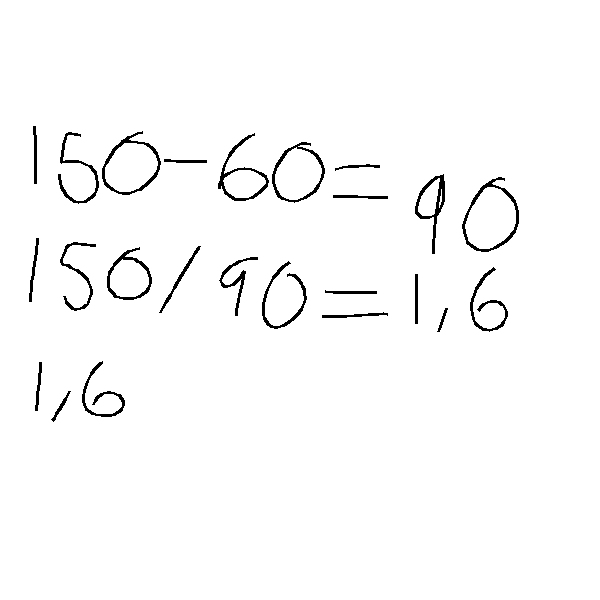 150-60=90
150/90=1,6
1,6